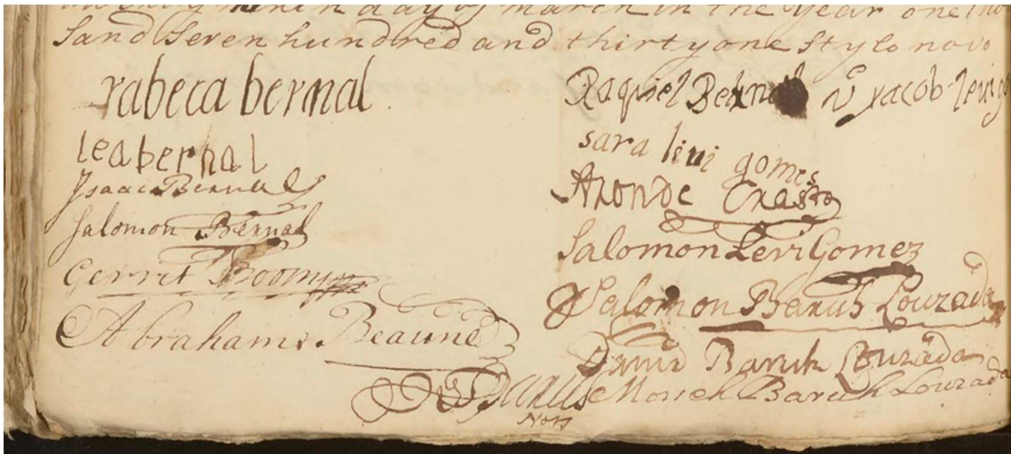 day of march in the Year one thou
sand Seven hundred and thirty one Stylo novo
rabeca bernal
lea bernal
Isaac Bernal
Salomon Bernal
Gerrit
Abrahams Beaune
Raquiel Bernal
yacob levi
sara livi gomes
Aron de Crasto
Salomon Levi Gomez
Salomon Baruh Louzada
David Baruh Louzada
Moseh Baruh Louzada
Nots